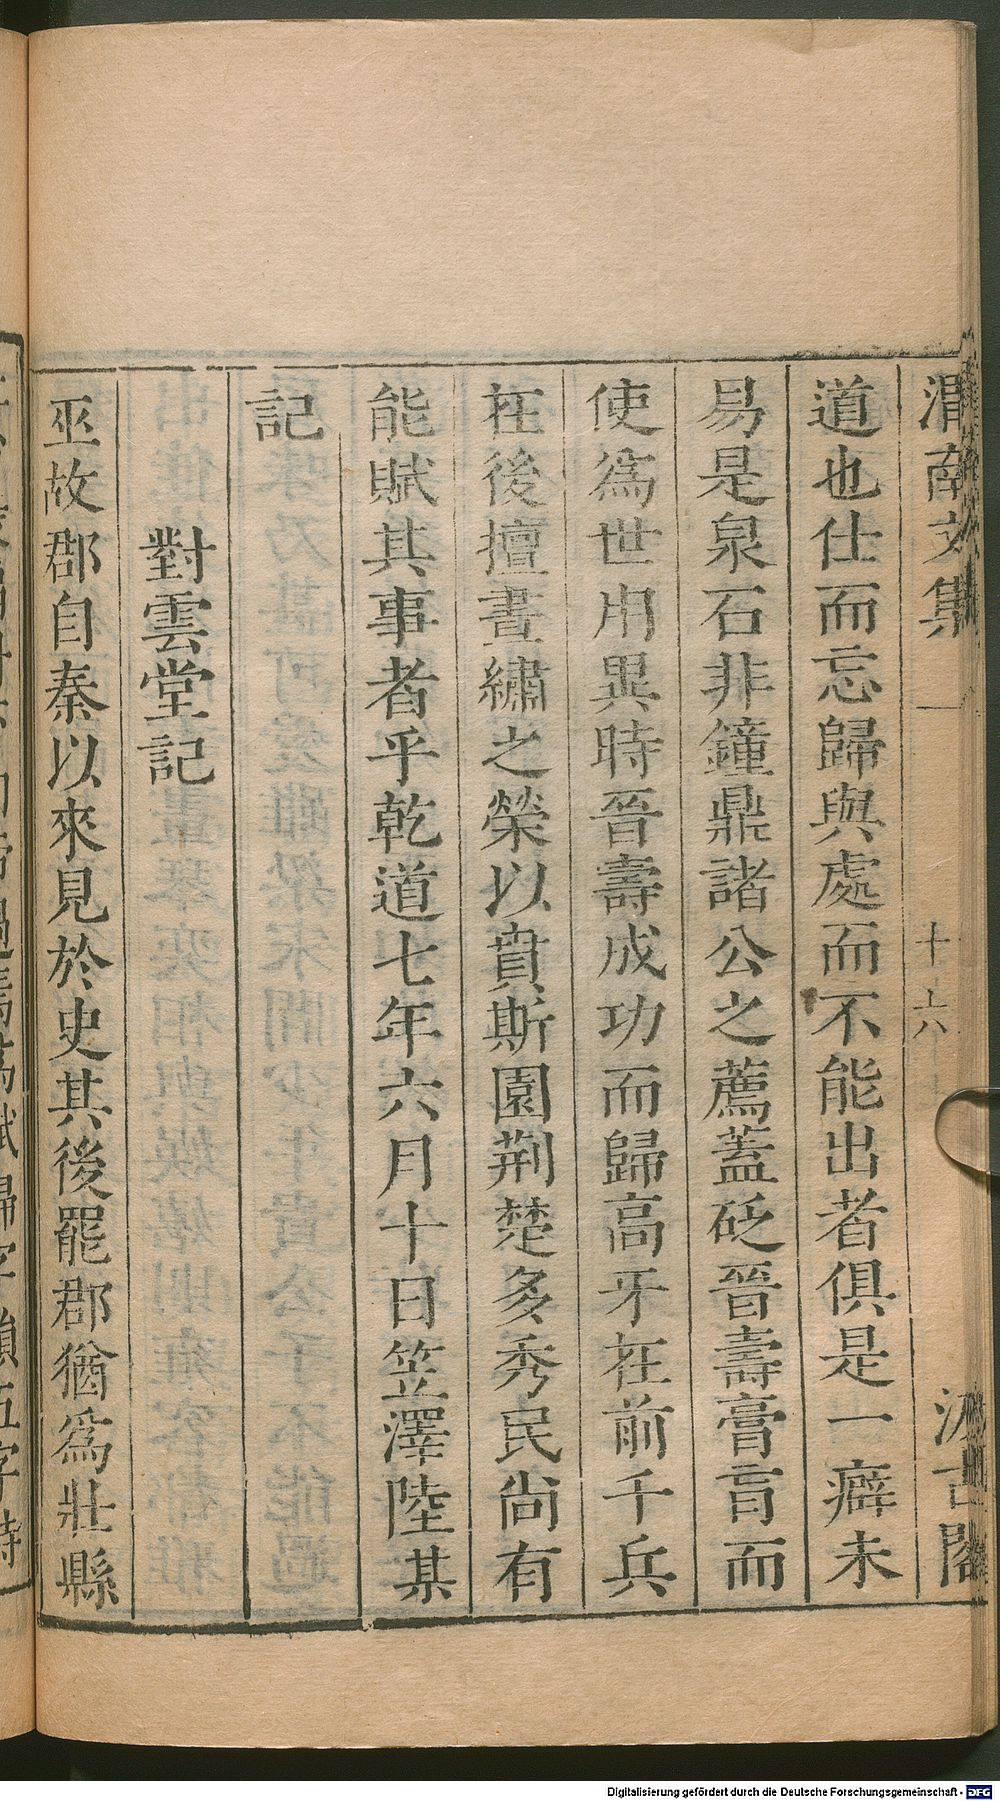 渭南文集 十六 汲古閣
道也仕而忘歸與處而不能出者俱是一癖未
易是泉石非鐘鼎諸公之薦蓋砭晉壽膏肓而
使爲世用異時晉壽成功而歸高牙在前千兵
在後擅晝繡之榮以賁斯園荆楚多秀民尚有
能賦其事者乎乾道七年六月十日笠澤陸某
記
對雲堂記
巫故郡自秦以來見於史其後罷郡猶爲壯縣
Digitalisierung gefördert durch die Deutsche Forschungsgemeinschaft - DFG